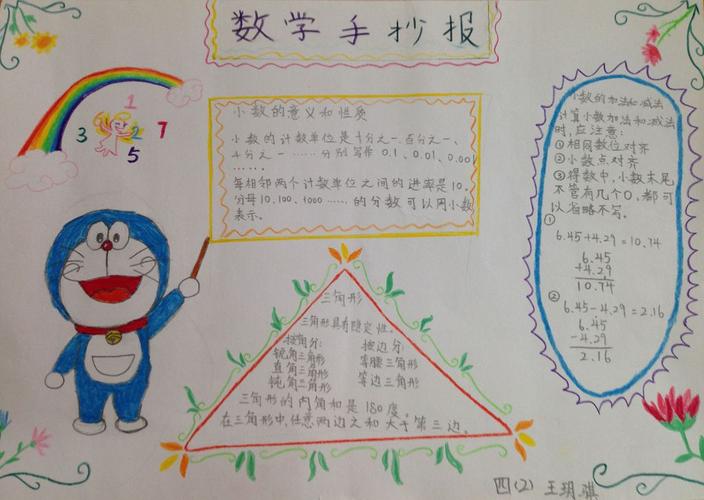 数学手抄报
1
3
7
2
5
小数的意义和性质
小数的计数单位是十分之一、百分之一、
千分之一……分别写作 0.1、0.01、0.001
……。
每相邻两个计数单位之间的进率是10。
分母10、100、1000……的分数可以用小数
表示。
小数的加法和减法
计算小数加法和减法
时,应注意:
①相同数位对齐
②小数点对齐
③得数中,小数末尾
不管有几个0,都可
以省略不写。
①
6.45+4.29=10.74
6.45
+4.29
10.74
②
6.45-4.29=2.16
6.45
-4.29
2.16
三角形
三角形具有稳定性。
按角分:
锐角三角形
直角三角形
钝角三角形
按边分:
等腰三角形
等边三角形
三角形的内角和是180度。
在三角形中,任意两边之和大于第三边。
四(2) 王玥琪